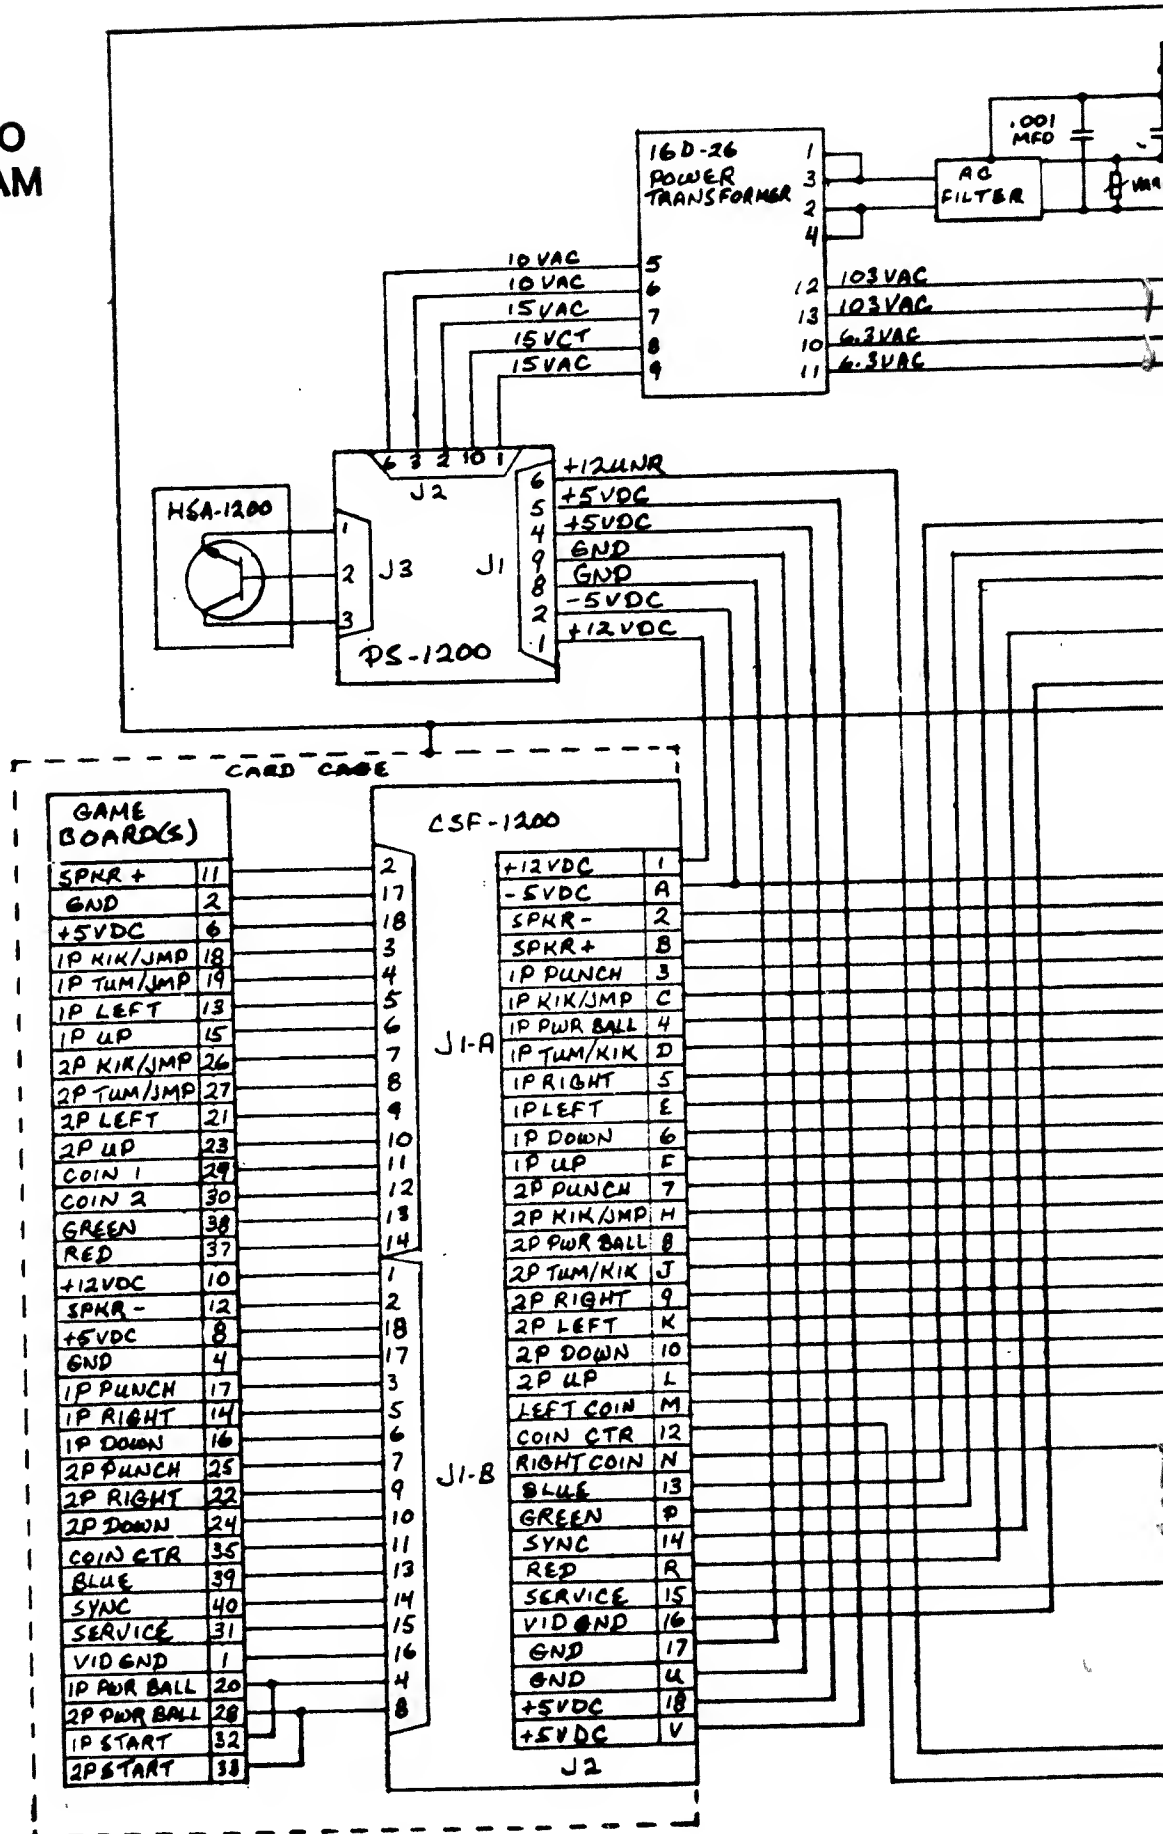 O
AM
.001
MFD
16D-26
POWER
TRANSFORMER
1
3
2
4
AC
FILTER
VAR
10 VAC
10 VAC
15 VAC
15 VCT
15 VAC
5
6
7
8
9
12
13
10
11
103VAC
103VAC
6.3VAC
6.3VAC
6 3 2 10 1
J2
HSA-1200
1
2
3
J3
J1
PS-1200
6 +12UNR
5 +5VDC
4 +5VDC
9 GND
8 GND
2 -5VDC
1 +12VDC
CARD CAGE
GAME
BOARD(S)
SPKR + 11
GND 2
+5VDC 6
1P KIK/JMP 18
1P TUM/JMP 19
1P LEFT 13
1P UP 15
2P KIK/JMP 26
2P TUM/JMP 27
2P LEFT 21
2P UP 23
COIN 1 29
COIN 2 30
GREEN 38
RED 37
+12VDC 10
SPKR- 12
+5VDC 8
GND 4
1P PUNCH 17
1P RIGHT 14
1P DOWN 16
2P PUNCH 25
2P RIGHT 22
2P DOWN 24
COIN CTR 35
BLUE 39
SYNC 40
SERVICE 31
VID GND 1
1P PWR BALL 20
2P PWR BALL 28
1P START 32
2P START 33
CSF-1200
2
17
18
3
4
5
6
7
8
9
10
11
12
13
14
J1-A
1
2
18
17
3
5
6
7
9
10
11
13
14
15
16
4
8
J1-B
+12VDC 1
-5VDC A
SPKR- 2
SPKR+ B
1P PUNCH 3
1P KIK/JMP C
1P PWR BALL 4
1P TUM/KIK D
1P RIGHT 5
1P LEFT E
1P DOWN 6
1P UP F
2P PUNCH 7
2P KIK/JMP H
2P PWR BALL 8
2P TUM/KIK J
2P RIGHT 9
2P LEFT K
2P DOWN 10
2P UP L
LEFT COIN M
COIN CTR 12
RIGHT COIN N
BLUE 13
GREEN P
SYNC 14
RED R
SERVICE 15
VID GND 16
GND 17
GND U
+5VDC 18
+5VDC V
J2